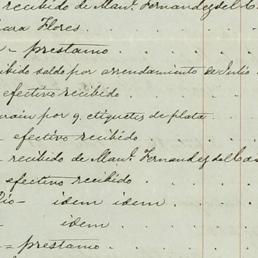 recibido de Man^l. Fernandez del C
ura Flores.
- prestamo
ibido saldo por arrendamiento de Julio
efectivo recibido
por 9, etiquetas de plata
- efectivo recibido
- recibido de Man^l. Fernandez del Cas
efectivo recibido
Dio - idem idem
idem
= prestamo